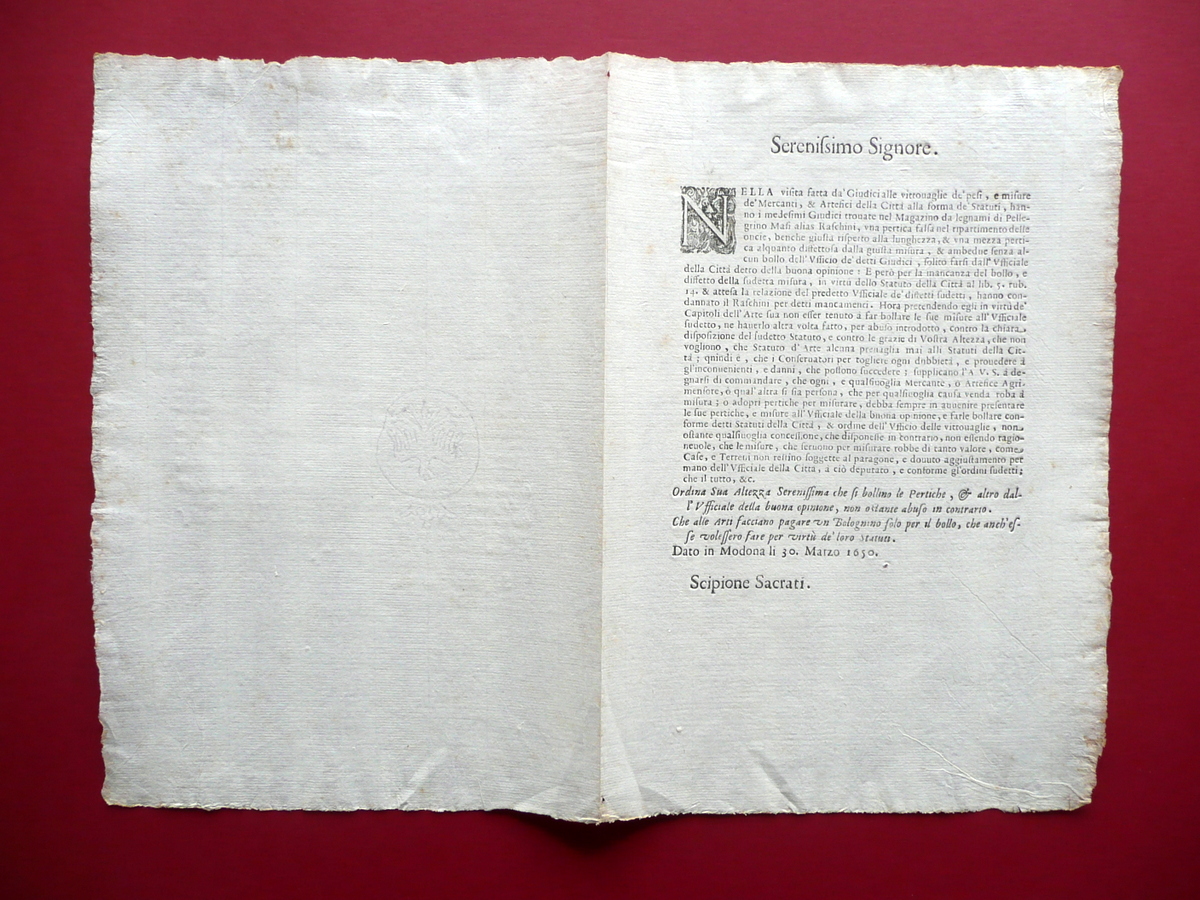 Sereniſsimo Signore.
NELLA viſita fatta da'Giudici alle vitrouaglie de'peſi, e miſure
de'Mercanti, & Artefici della Città alla forma de'Statuti, han-
no i medeſimi Giudici trouate nel Magazino da legnami di Pelle-
grino Maſi alias Raſchini, vna pertica falſa nel ripartimento delle
oncie, benche giuſta riſpetto alla lunghezza, & vna mezza perti-
ca alquanto diffettoſa dalla giuſta miſura, & ambedue ſenza al-
cun bollo dell'Vfficio de'detti Giudici, ſolito farſi dall'Vfficiale
della Città detto della buona opinione: E però per la mancanza del bollo, e
diffetto della ſudetta miſura, in virtù dello Statuto della Città al lib. 5. rub.
14. & atteſa la relazione del predetto Vfficiale de'diffetti ſudetti, hanno con-
dannato il Raſchini per detti mancamenti. Hora pretendendo egli in virtù de'
Capitoli dell'Arte ſua non eſſer tenuto à far bollare le ſue miſure all'Vfficiale
ſudetto, ne hauerlo altra volta fatto, per abuſo introdotto, contro la chiara
diſpoſizione del ſudetto Statuto, e contro le grazie di Voſtra Altezza, che non
vogliono, che Statuto d'Arte alcuna preuaglia mai alli Statuti della Cit-
tà; quindi è, che i Conſeruatori per togliere ogni dubbietà, e prouedere à
gl'inconuenienti, e danni, che poſſono ſuccedere; ſupplicano l'A V. S. à de-
gnarſi di commandare, che ogni, e qualſiuoglia Mercante, o Artefice Agri-
menſore, ò qual'altra ſi ſia perſona, che per qualſiuoglia cauſa venda roba à
miſura; o adopri pertiche per miſurare, debba ſempre in auuenire preſentare
le ſue pertiche, e miſure all'Vfficiale della buona opinione, e farle bollare con-
forme detti Statuti della Città, & ordine dell'Vfficio delle vitrouaglie, non
oſtante qualſiuoglia conceſſione, che diſponeſſe in contrario, non eſſendo ragio-
neuole, che le miſure, che ſeruono per miſurare robbe di tanto valore, come
Caſe, e Terreni non reſtino ſoggette al paragone, e douuto aggiuſtamento per
mano dell'Vfficiale della Città, à ciò deputato, e conforme gl'ordini ſudetti;
che il tutto, &c.
Ordina Sua Altezza Sereniſſima che ſi bollino le Pertiche, & altro dal-
l'Vfficiale della buona opinione, non oſtante abuſo in contrario.
Che alle Arti facciano pagare vn Bolognino ſolo per il bollo, che anch'eſ-
ſe voleſſero fare per virtù de'loro Statuti.
Dato in Modona li 30. Marzo 1650.
Scipione Sacrati.